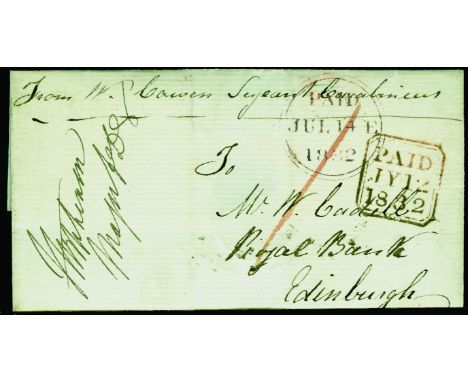 From W. Cowen Serjeant Carabineers
PAID
JUL 14 E
1832
PAID
JY 12
1832
To
Mr. W.
Royal Bank
Edinburgh
Major